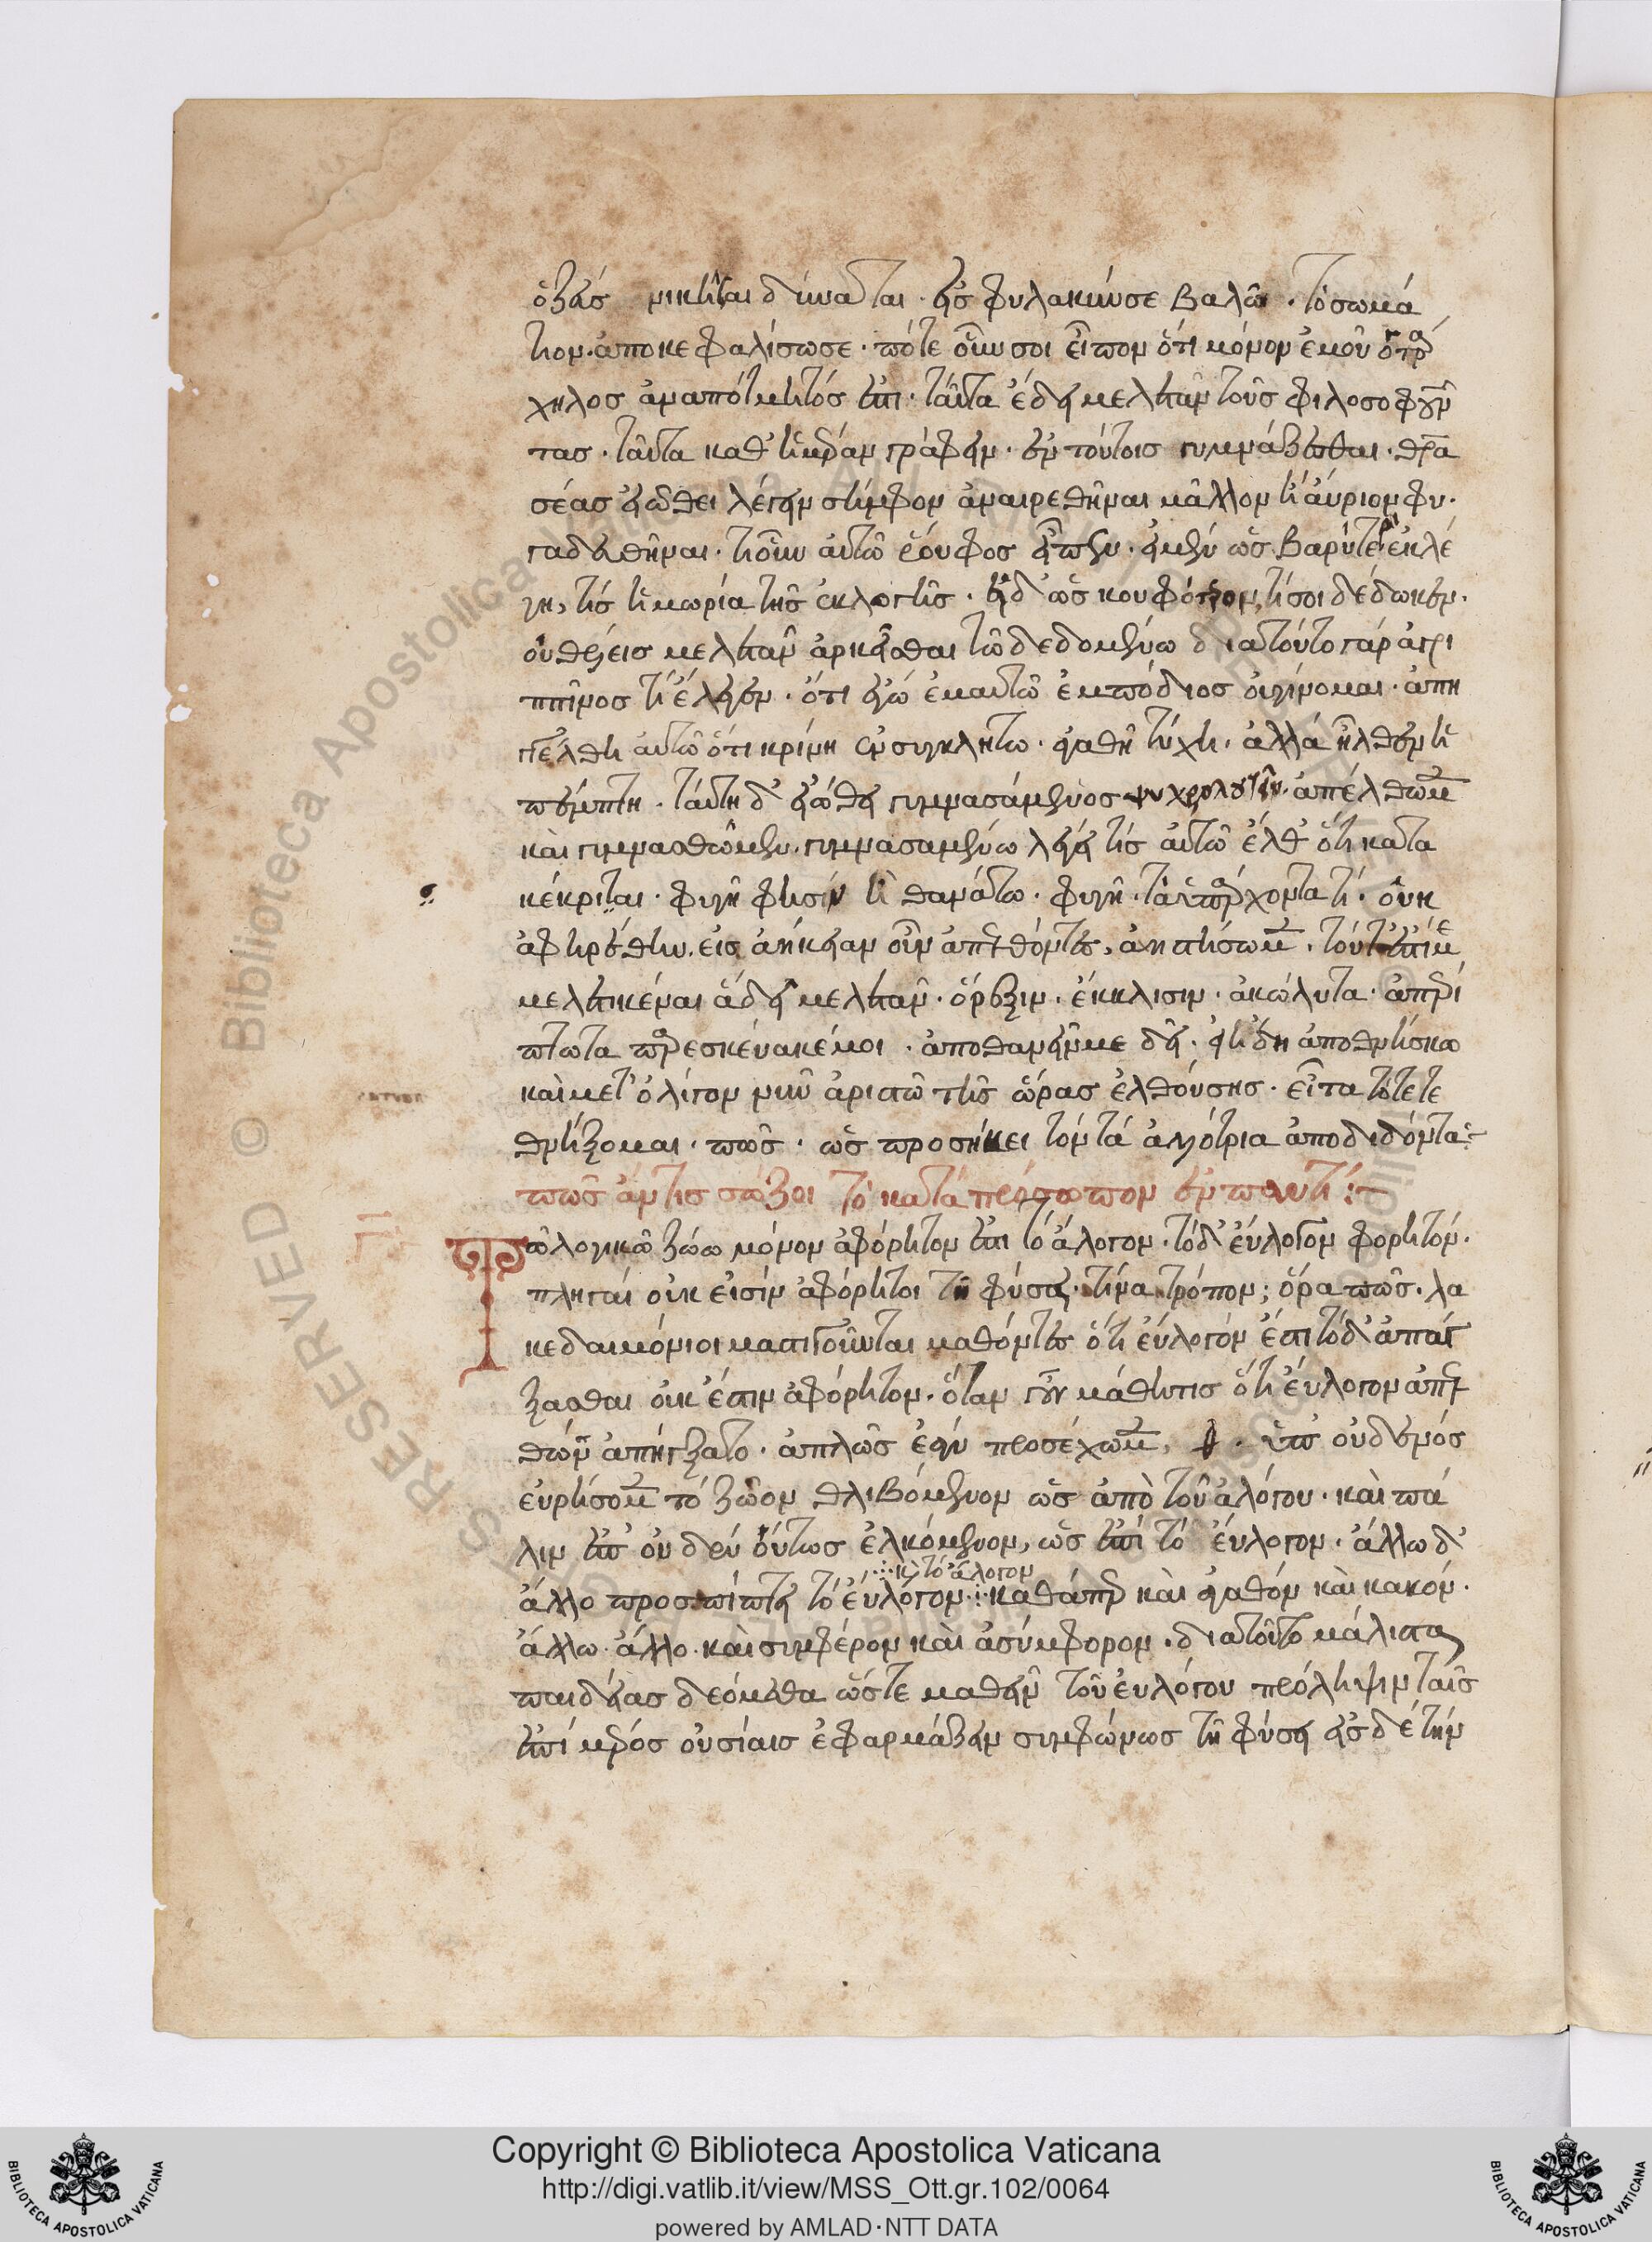 ὁ ζεύς νικῆσαι δύναται. εἰς φυλακήν σε βαλῶ. τὸ σωμά
τιον. ἀποκεφαλίσω σε. πότε οὖν σοι εἶπον ὅτι μόνου ἐμοῦ ὁ τρά
χηλος ἀναπότμητός ἐστι. ταῦτα ἔδει μελετᾶν τοὺς φιλοσοφοῦν
τας. ταῦτα καθ' ἡμέραν γράφειν. ἐν τούτοις γυμνάζεσθαι. θρα
σέας εἰώθει λέγειν σήμερον ἀναιρεθῆναι μᾶλλον ἢ αὔριον φυ.
γαδευθῆναι. τί οὖν αὐτῷ ῥοῦφος εἶπεν. εἰ μὲν ὡς βαρύτερον ἐκλέ
γη, τίς ἡ μωρία τῆς ἐκλογῆς. εἰ δ' ὡς κουφότερον, τίς σοι δέδωκεν.
οὐ θέλεις μελετᾶν ἀρκεῖσθαι τῷ δεδομένῳ διατοῦτο γὰρ ἀγρι
ππῖνος τί ἔλεγεν. ὅτι ἐγὼ ἐμαυτῷ ἐμπόδιος οὐ γίνομαι. ἀπη
γγέλθη αὐτῷ ὅτι κρίνη ἐν συγκλήτω. ἀγαθῇ τύχη. ἀλλὰ ἦλθεν ἡ
πέμπτη. ταύτη δ' εἰώθει γυμνασάμενος ψυχρολουτεῖν. ἀπέλθωμεν
καὶ γυμνασθῶμεν. γυμνασαμένω λέγει τίς αὐτῷ ἐλθ ὅτι κατα
κέκριται. φυγῆ φησὶν ἢ θανάτω. φυγῆ. τὰ ὑπάρχοντα τί. οὐκ
ἀφηρέθη. εἰς ἀρίκειαν οὖν ἀπελθόντες, ἀριστήσωμεν. τοῦτ' ἐστὶ με
μελετηκέναι ἃ δεῖ μελετᾶν. ὄρεξιν. ἔκκλισιν. ἀκώλυτα. ἀπερί
πτωτα παρεσκευακέναι. ἀποθανεῖν με δεῖ. εἰ ἤδη ἀποθνήσκω
καὶ μετ' ὀλίγον νῦν ἀριστῶ τῆς ὥρας ἐλθούσης. εἶτα τότε τε
θνήξομαι. πῶς. ὡς προσήκει τὸν τὰ ἀλλότρια ἀποδιδόντα:
πῶς ἄν τις σώζοι τὸ κατὰ πρόσωπον ἐν παντί:
Τῶ λογικῶ ζώω μόνον ἀφόρητον ἐστι τὸ ἄλογον. τὸ δ' εὔλογον φορητόν.
πληγαί οὐκ εἰσὶν ἀφόρητοι τῇ φύσει. τίνα τρόπον; ὅρα πῶς. λα
κεδαιμόνιοι μαστιγοῦνται μαθόντες ὅτι εὔλογόν ἐστι τὸ δ' ἀπάγ
ξασθαι οὐκ ἔστιν ἀφόρητον. ὅταν γοῦν μάθη τις ὅτι εὔλογον ἀπελ
θὼν ἀπήγξατο. ἁπλῶς ἐὰν προσέχωμεν, . ὑπ' οὐδενός
εὑρήσομεν τὸ ζῶον θλιβόμενον ὡς ἀπὸ τοῦ ἀλόγου. καὶ πά
λιν ἐπ' οὐδὲν οὕτως ἑλκόμενον, ὡς ἐπὶ τὸ εὔλογον. ἄλλω δ'
∴ κ τὸ ἄλογον
ἄλλο προσπίπτει τὸ εὔλογον ∴ καθάπερ καὶ ἀγαθὸν καὶ κακόν.
ἄλλω. ἄλλο. καὶ συμφέρον καὶ ἀσύμφορον. διατοῦτο μάλιστα
παιδείας δεόμεθα ὥστε μαθεῖν τοῦ εὐλόγου πρόληψιν ταῖς
ἐπὶ μέρος οὐσίαις ἐφαρμόζειν συμφώνως τῇ φύσει εἰς δὲ τὴν
Copyright © Biblioteca Apostolica Vaticana
http://digi.vatlib.it/view/MSS_Ott.gr.102/0064
powered by AMLAD·NTT DATA